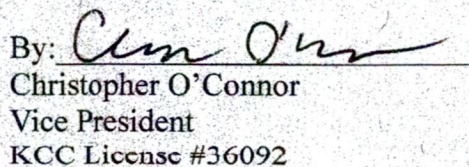 By: Chris O'Connor
Christopher O'Connor
Vice President
KCC License #36092